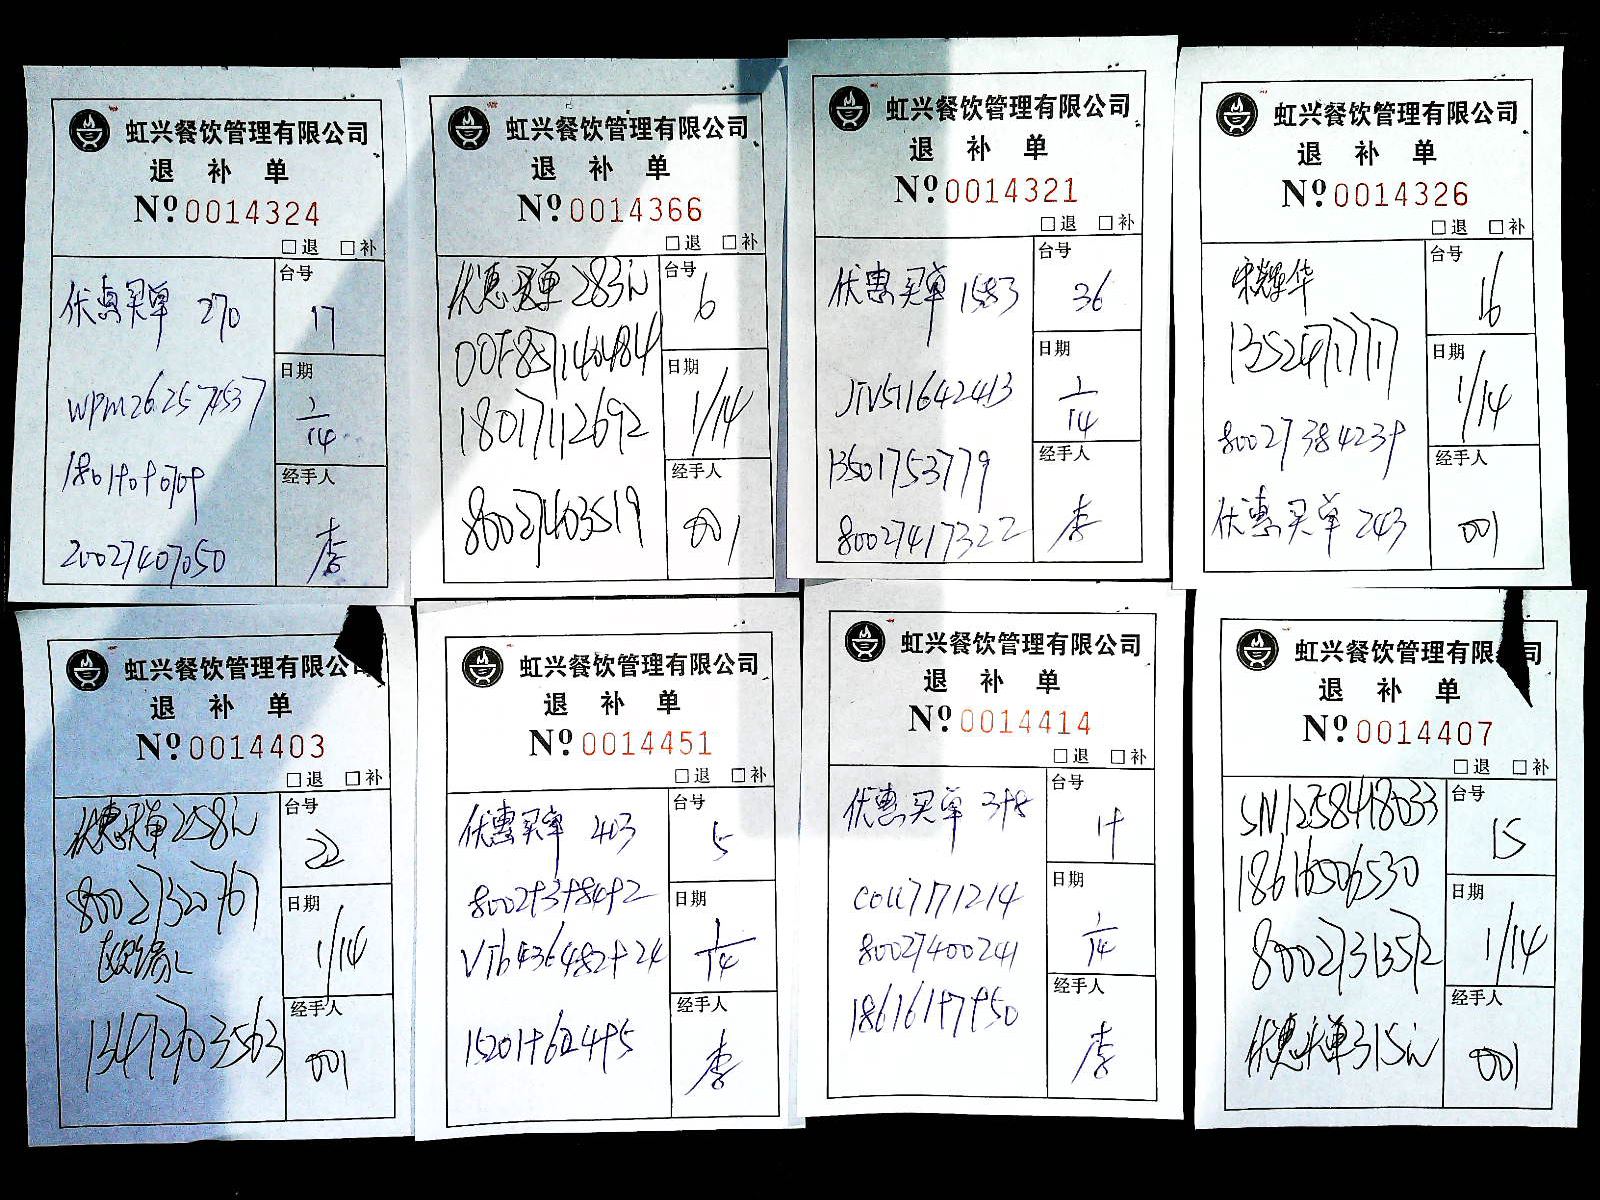 虹兴餐饮管理有限公司
退 补 单
Nº 0014324
□退 □补
优惠买单 270
台号
17
日期
1/14
经手人
李
20027407050
虹兴餐饮管理有限公司
退 补 单
Nº 0014366
□退 □补
优惠买单 283元
台号
6
日期
1/14
18017112692
经手人
80027403519
001
虹兴餐饮管理有限公司
退 补 单
Nº 0014321
□退 □补
优惠买单 1583
台号
36
日期
1/14
JIV511642413
13501753779
经手人
80027417322
李
虹兴餐饮管理有限公司
退 补 单
Nº 0014326
□退 □补
台号
16
日期
1/14
经手人
优惠买单 243
001
虹兴餐饮管理有限公司
退 补 单
Nº 0014403
□退 □补
优惠买单 258元
台号
22
80027320767
日期
1/14
经手人
13472703563
001
虹兴餐饮管理有限公司
退 补 单
Nº 0014451
□退 □补
优惠买单 403
台号
5
日期
1/14
经手人
李
虹兴餐饮管理有限公司
退 补 单
Nº 0014414
□退 □补
优惠买单 398
台号
19
日期
1/14
80027400241
经手人
18616197950
李
虹兴餐饮管理有限 司
退 补 单
Nº 0014407
□退 □补
SN1258418033
台号
15
18616506530
日期
1/14
80027313572
经手人
优惠买单 315元
001